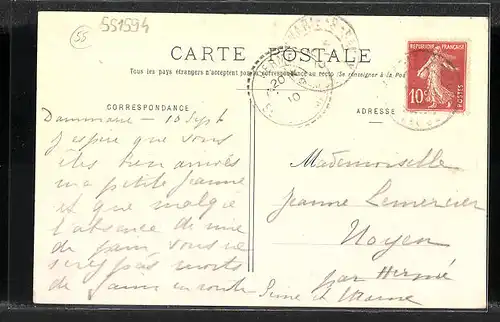 55
551594
CARTE POSTALE
Tous les pays étrangers n'acceptent pas la correspondance au recto (Se renseigner à la Poste)
REPUBLIQUE FRANÇAISE
10c
POSTES
CORRESPONDANCE
ADRESSE
Dammarie – 10 Sept
J'espère que vous
êtes bien arrivés
ma petite Jeanne
et que malgré
l'absence de mie
de pain vous ne
serez pas morts
de faim en route
Mademoiselle
Jeanne Lemercier
Noyen
par Hermé
Seine et Marne